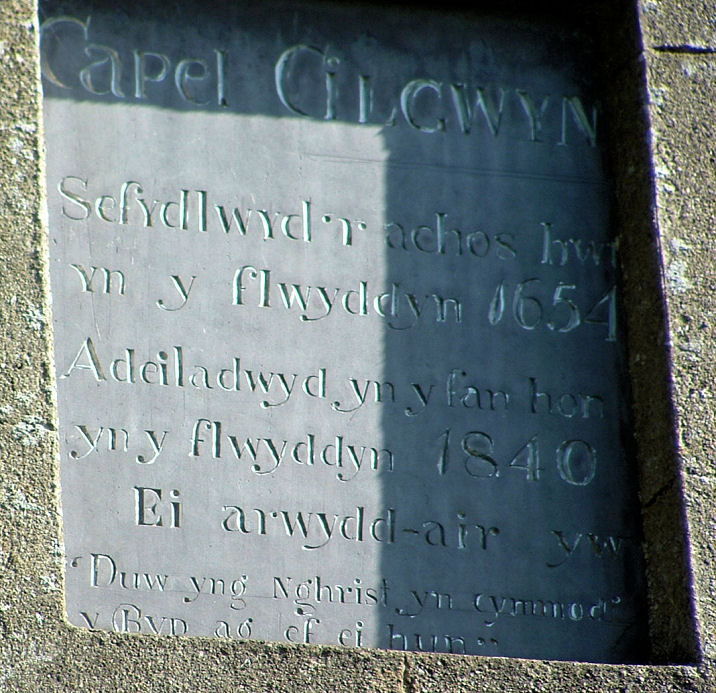 Capel Cilgwyn
Sefydlwyd'r achos hwn
yn y flwyddyn 1654
Adeiladwyd yn y fan hon
yn y flwyddyn 1840
Ei arwydd-air yw
"Duw yng Nghrist yn cymmod
y Byd ag ef ei hun"